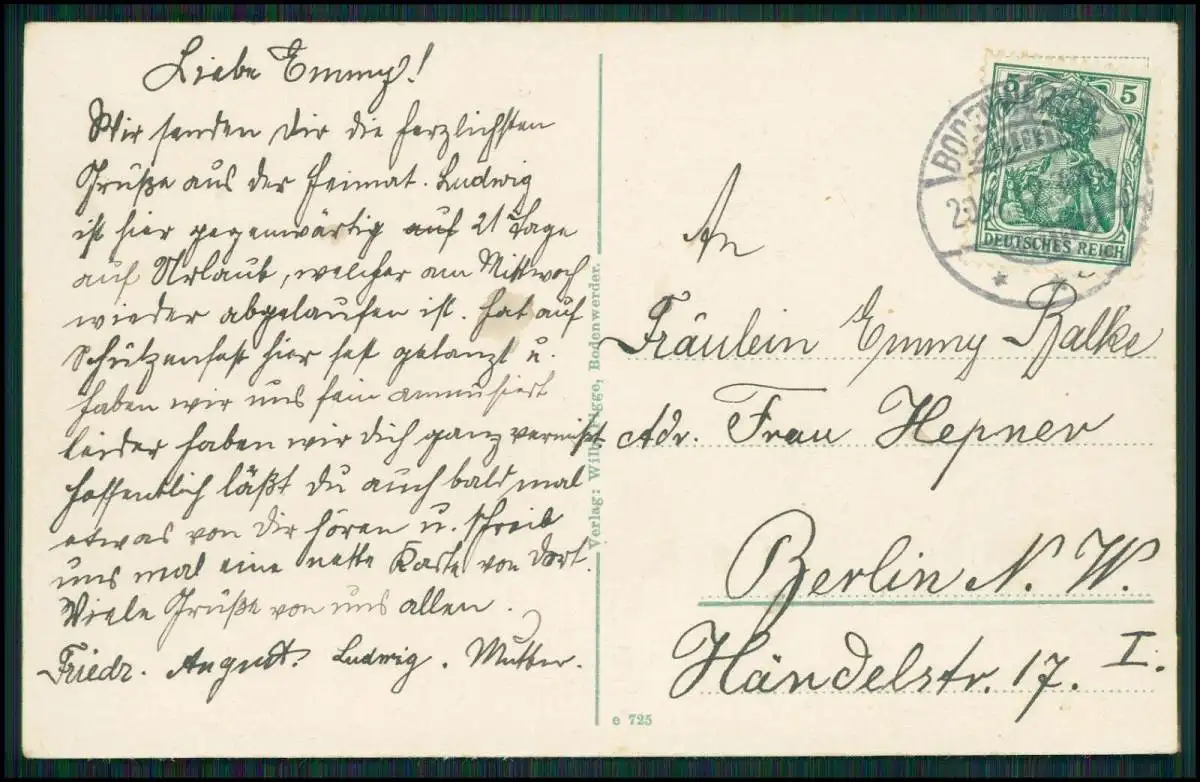 Liebe Emmy!
Wir senden Dir die herzlichsten
Grüße aus der Heimat. Ludwig
ist hier gegenwärtig auf 21 Tage
auf Urlaub, welcher am Mittwoch
wieder abgelaufen ist. Hat auf
Schützenfest hier fest getanzt u.
haben wir uns fein ammusiert
leider haben wir Dich ganz vermißt.
Hoffentlich läßt Du auch bald mal
etwas von Dir hören u. schreib
uns mal eine nette Karte von dort.
Viele Grüße von uns allen.
Friedr. August. Ludwig. Mutter.
Verlag: Wilh. Bodenwerder.
e 725
5 5
DEUTSCHES REICH
An
Fräulein Emmy Balke
Adr. Frau Hepner
Berlin N. W.
Händelstr. 17. I.